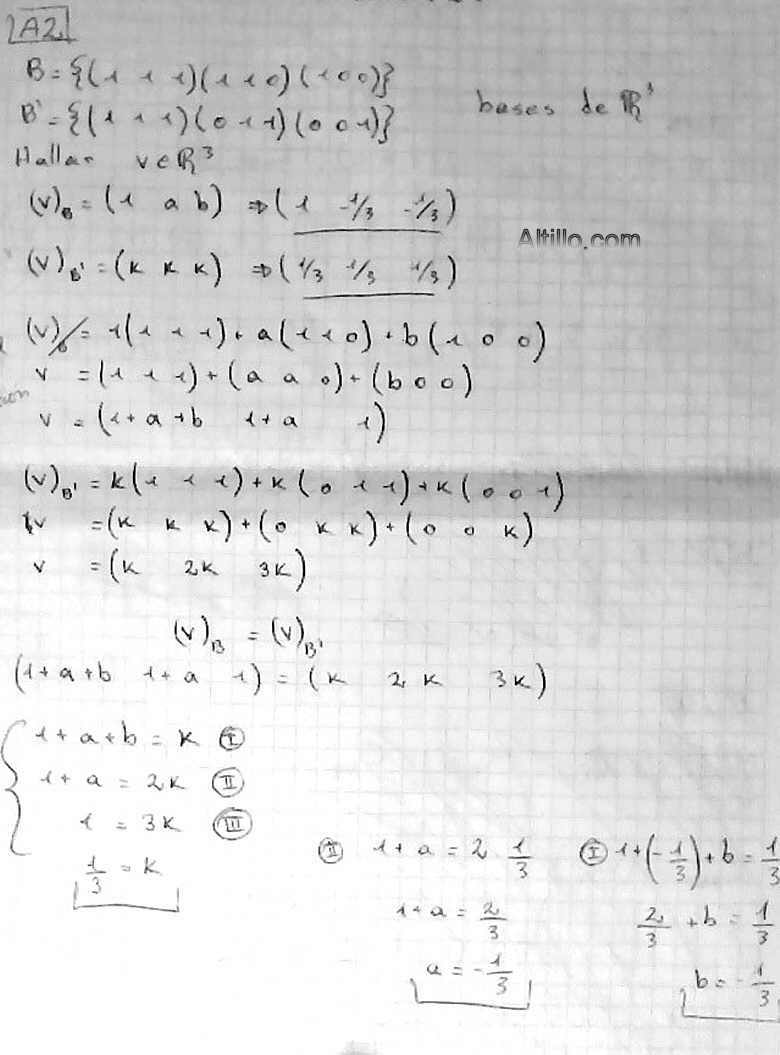 A2
B={(1 1 1)(1 1 0)(1 0 0)}
B'={(1 1 1)(0 1 1)(0 0 1)} bases de R³
Hallar v∈R³
(v)_B = (1 a b) ⇒ (1 -1/3 -1/3)
Altillo.com
(v)_B' = (k k k) ⇒ (1/3 1/3 1/3)
(v)_B = 1(1 1 1) + a(1 1 0) + b(1 0 0)
v = (1 1 1) + (a a 0) + (b 0 0)
v = (1+a+b 1+a 1)
(v)_B' = k(1 1 1) + k(0 1 1) + k(0 0 1)
v = (k k k) + (0 k k) + (0 0 k)
v = (k 2k 3k)
(v)_B = (v)_B'
(1+a+b 1+a 1) = (k 2k 3k)
1+a+b = k Ⅰ
1+a = 2k Ⅱ
1 = 3k Ⅲ
1/3 = k
Ⅱ 1+a = 2 1/3
1+a = 2/3
a = -1/3
Ⅰ 1+(-1/3)+b = 1/3
2/3 + b = 1/3
b = -1/3